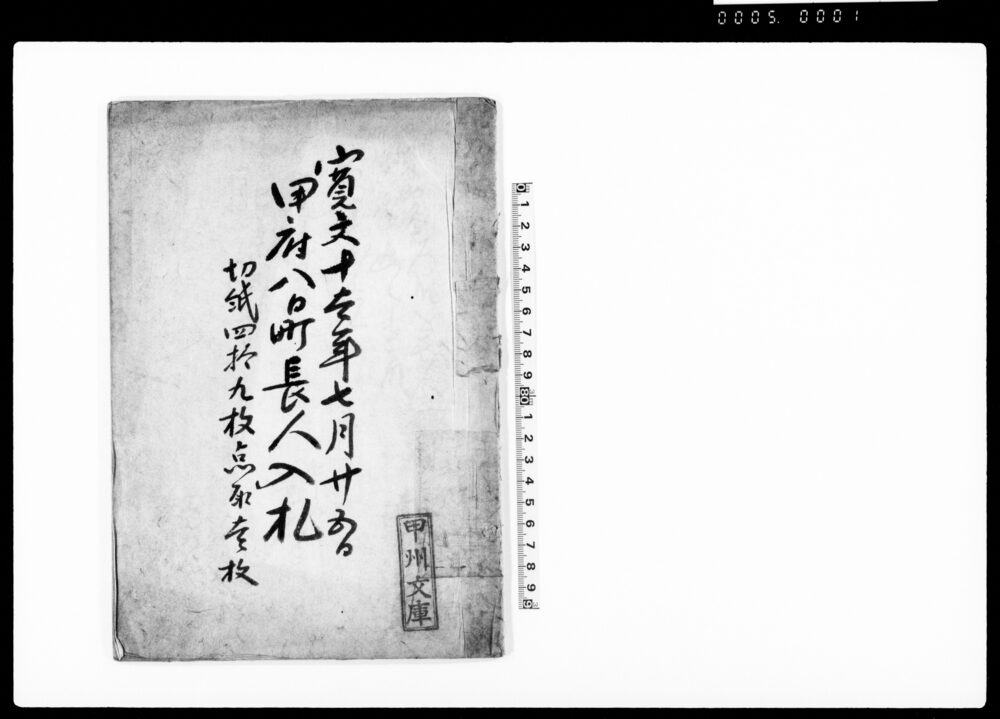 0005. 0001
寛文十壱年七月廿五日
甲府八日町長人入札
切紙四拾九枚点取壱枚
甲州文庫
0 1 2 3 4 5 6 7 8 9 10 1 2 3 4 5 6 7 8 9